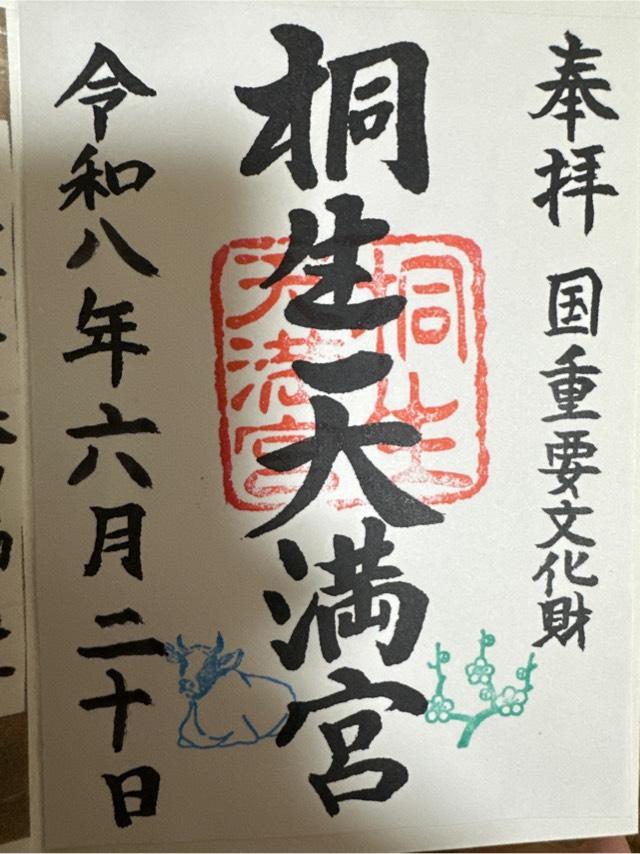 奉拝 国重要文化財
桐生天満宮
桐生
天満宮
令和八年六月二十日